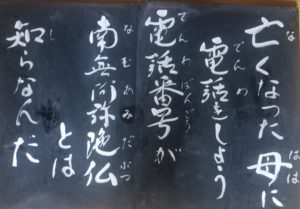 亡くなった母に
電話をしよう
電話番号が
南無阿弥陀仏
とは
知らなんだ